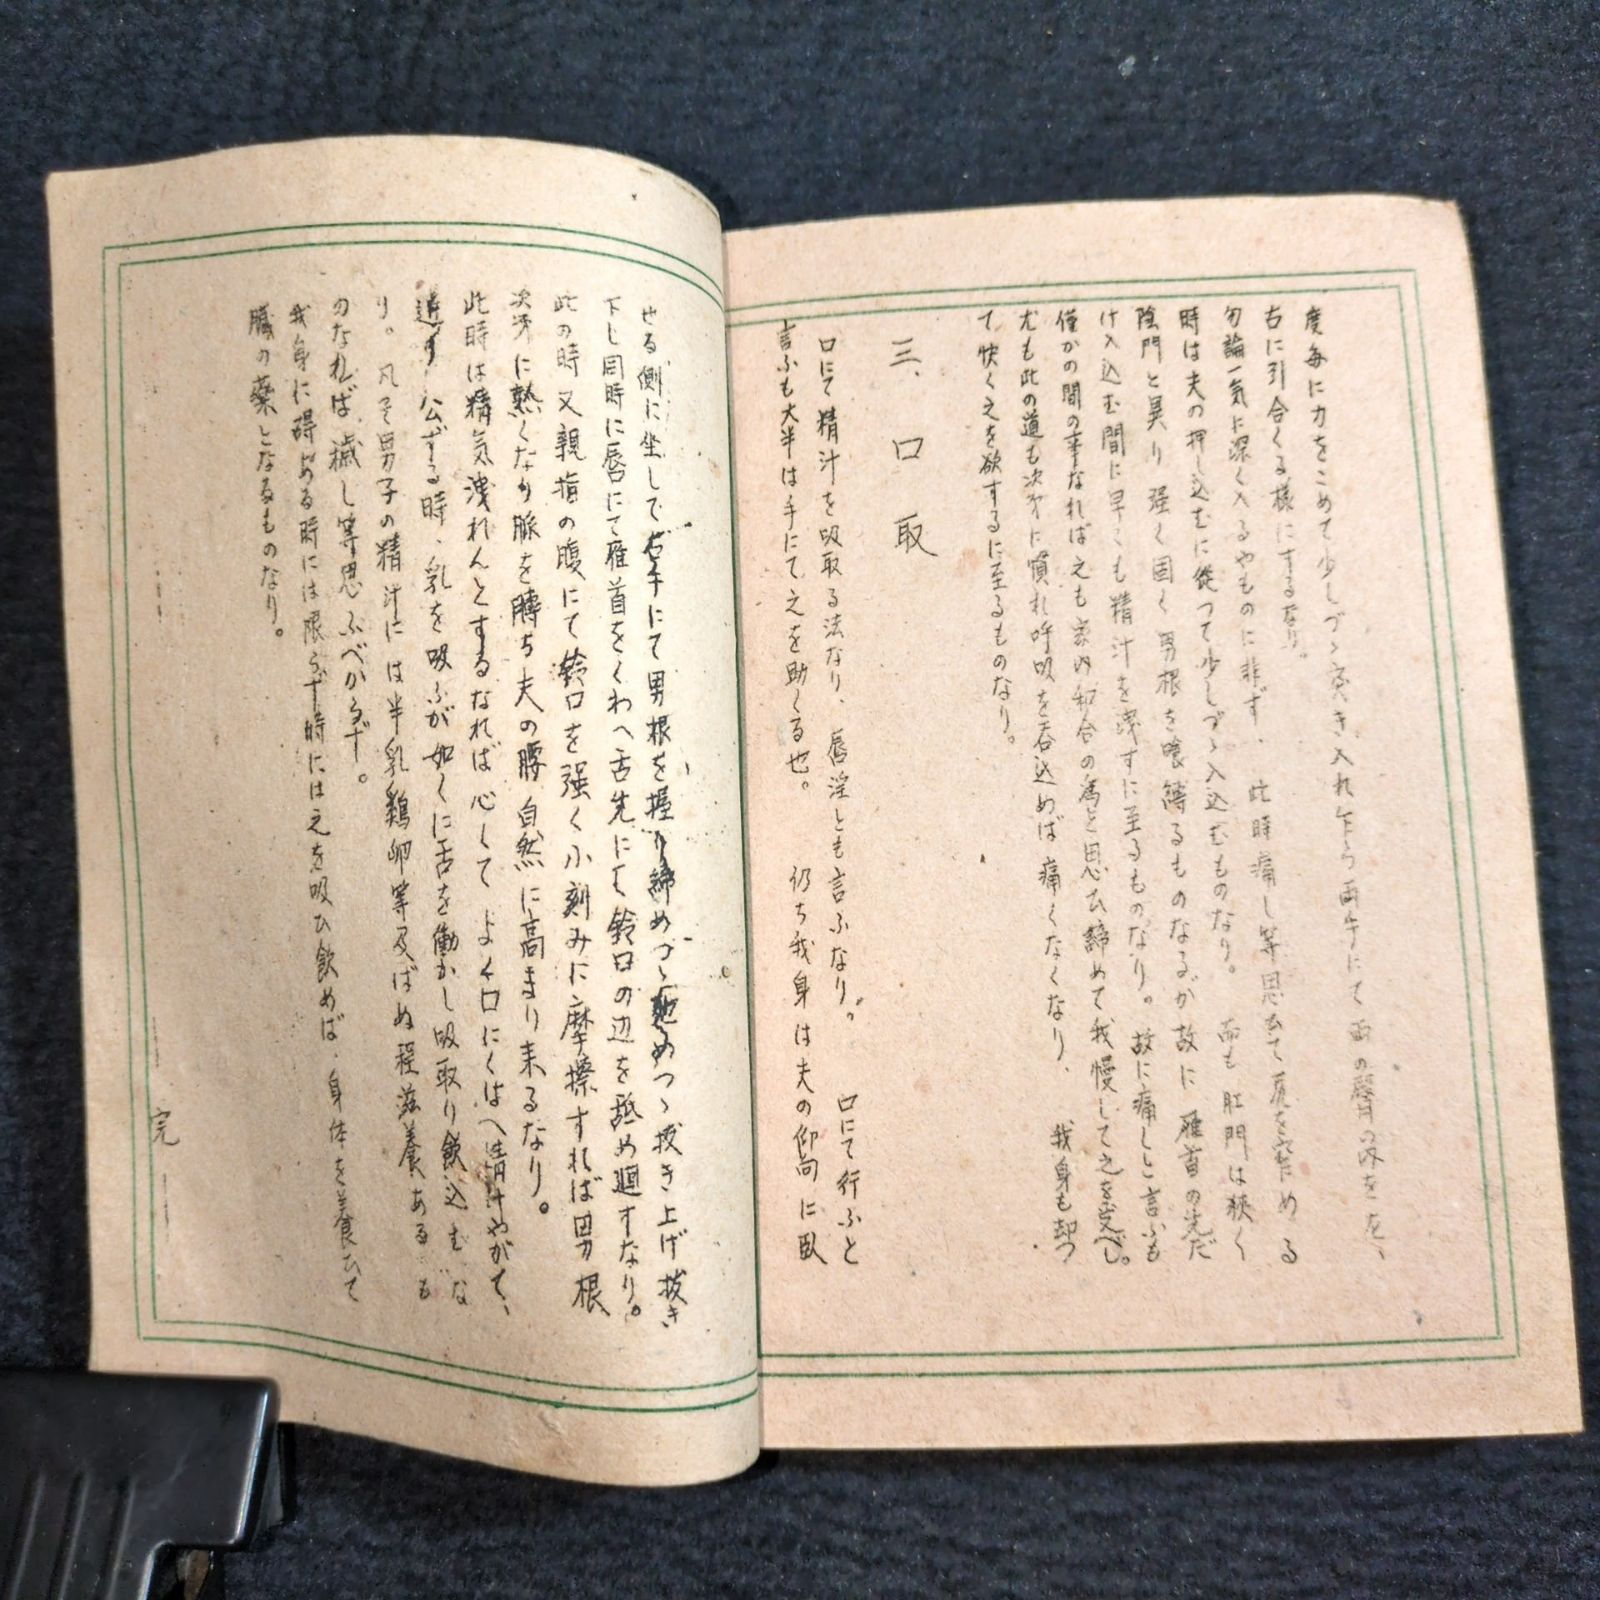 度毎に力をこめて少しづゝ突き入れ乍ら両手にて両の臀の肉を、
右に引合くる様にするなり。
勿論一気に深く入るやものに非ず、此時痛し等思ひて尻を窄める
時は夫の押し込むに従つて少しづゝ入込むものなり。而も肛門は狭く
陰門と異り強く固く男根を喰縛るものなるが故に雁首の先だ
け入込む間に早くも精汁を洩すに至るものなり。故に痛しと言ふも
僅かの間の事なれば之も家内和合の為と思ひ諦めて我慢して之を受べし。
尤も此の道も次第に慣れ呼吸を呑込めば痛くなくなり、我身も却つ
て快く之を欲するに至るものなり。
三、口取
口にて精汁を吸取る法なり、唇淫とも言ふなり。口にて行ふと
言ふも大半は手にて之を助くる也。仍ち我身は夫の仰向に臥
せる側に坐して右手にて男根を握り締めづゝめつゝ抜き上げ抜き
下し同時に唇にて雁首をくわへ舌先にて鈴口の辺を舐め廻すなり。
此の時又親指の腹にて鈴口を強く小刻みに摩擦すれば男根
次第に熱くなり脈を搏ち夫の腰自然に高まり来るなり。
此時は精気洩れんとするなれば心してよく口にくはへ精汁やがて、
する時、乳を吸ふが如くに舌を働かし吸取り飲込むな
り。凡そ男子の精汁には半乳鶏卵等及ばぬ程滋養あるも
のなれば、穢し等思ふべからず。
我身に碍ある時には限らず時には之を吸ひ飲めば、身体を養ひて
臓の薬となるものなり。
完